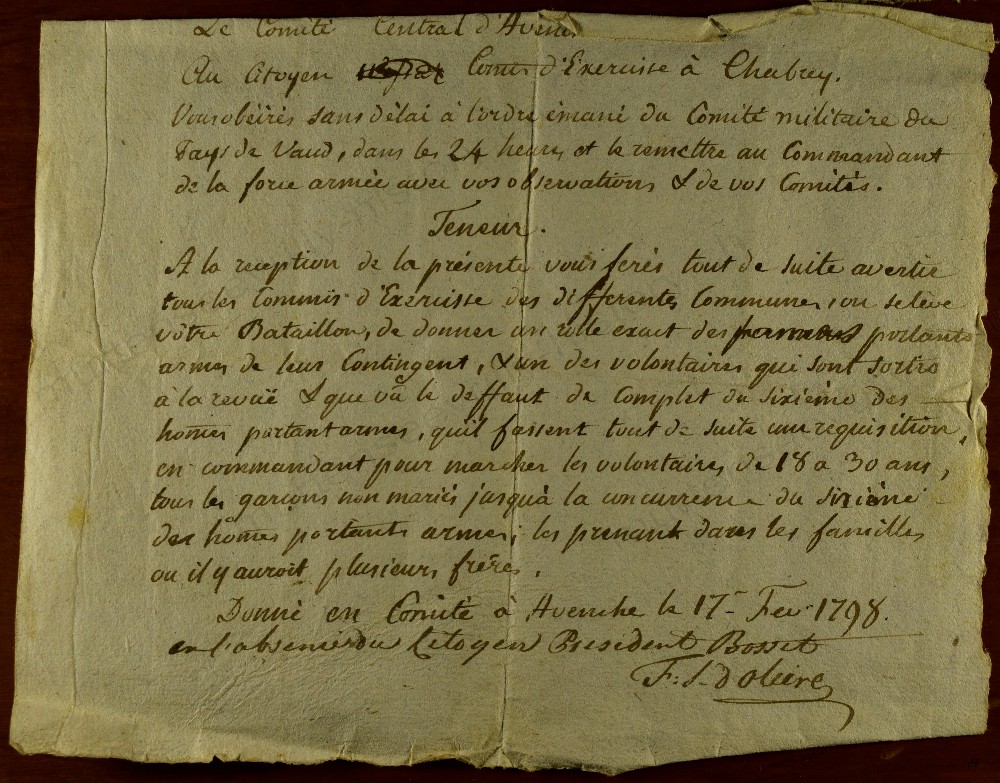 Le Comité Central d'Avenche
Au Citoyen Comis d'Exercisse à Chabrey.
Vous obéirés sans délai à l'ordre émané du Comité militaire du
Pays de Vaud, dans les 24 heures et le remettre au Commandant
de la force armée avec vos observations & de vos Comités.
Teneur.
A la reception de la présente vous ferés tout de suite avertir
tous les Commis d'Exercisse des differentes Communes, ou se leve
vôtre Bataillon, de donner un rolle exact des portants
armes de leur Contingent, & un des volontaires qui sont sortis
à la revuë & que vû le deffaut de Complet du sixième des
homes portant armes, qu'il fassent tout de suite une requisition,
en commandant pour marcher les volontaires de 18 a 30 ans,
tous les garçons non mariés jusqu'à la concurrence du sixième
des homes portants armes; les prenant dans les familles
ou il y auroit plusieurs frères.
Donné en Comité à Avenche le 17 Fev. 1798.
en l'absence du Citoyen President Bosset
F. S. Doleire